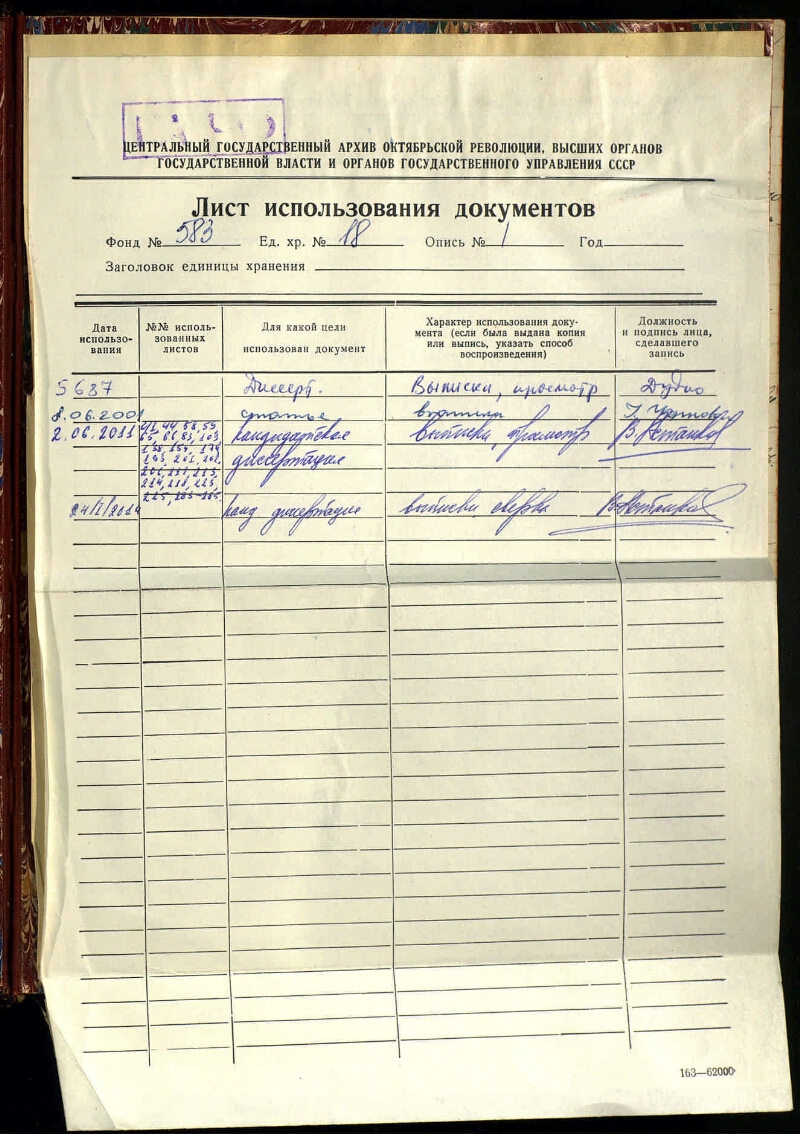 ЦЕНТРАЛЬНЫЙ ГОСУДАРСТВЕННЫЙ АРХИВ ОКТЯБРЬСКОЙ РЕВОЛЮЦИИ, ВЫСШИХ ОРГАНОВ
ГОСУДАРСТВЕННОЙ ВЛАСТИ И ОРГАНОВ ГОСУДАРСТВЕННОГО УПРАВЛЕНИЯ СССР
Лист использования документов
Фонд № 583 Ед. хр. № 18 Опись № 1 Год
Заголовок единицы хранения
Дата использования
№№ исполь-
зованных
листов
Для какой цели
использован документ
Характер использования доку-
мента (если была выдана копия
или выпись, указать способ
воспроизведения)
Должность
и подпись лица,
сделавшего
запись
5 6 87 Диссерт. Выписки, просмотр
8.06.2001 статье
2.06.2011 кандидатская выписки, просмотр
диссертация
канд диссертация выписки сверка
163—62000